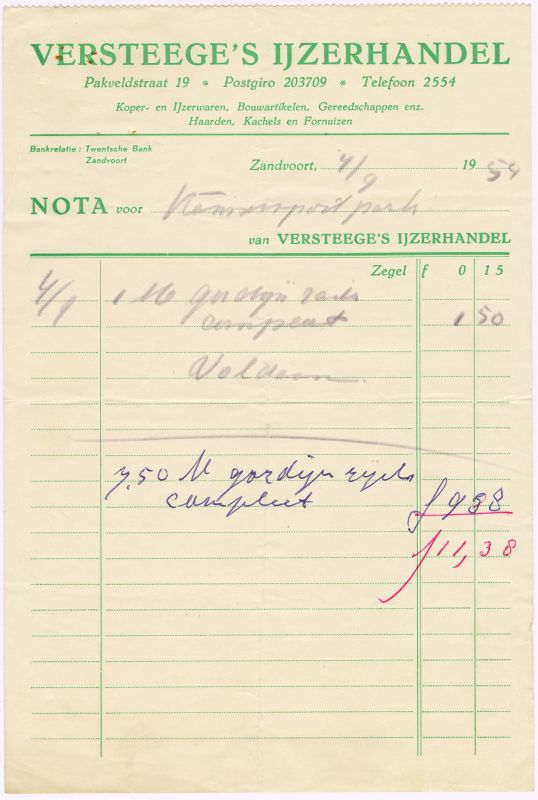 VERSTEEGE'S IJZERHANDEL
Pakveldstraat 19 * Postgiro 203709 * Telefoon 2554
Koper- en IJzerwaren, Bouwartikelen, Gereedschappen enz.
Haarden, Kachels en Fornuizen
Bankrelatie: Twentsche Bank
Zandvoort
Zandvoort, 4/9 1954
NOTA voor
van VERSTEEGE'S IJZERHANDEL
Zegel f 0 15
4/9 1 M gordijn rails
compleet 1 50
Voldaan
7,50 M gordijn
compleet f 9 38
f 11,38